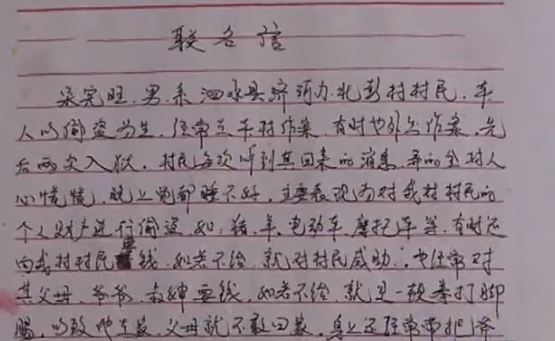 联名信
宋完旺，男，系泗水县济河办北彭村村民，本
人以偷盗为生，经常在本村作案，有时也外出作案，先
后两次入狱，村民每次听到其回来的消息，弄的全村人
心慌慌，晚上觉都睡不好，主要表现为对我村村民的
个人财产进行偷盗，如，猪、羊、电动车、摩托车等，有时还
向我村村民要钱，如若不给，就对村民威胁，也经常对
其父母、爷爷、叔婶要钱，如若不给，就是一顿拳打脚
踢，以致他在家，父母就不敢回家，身上还经常带把